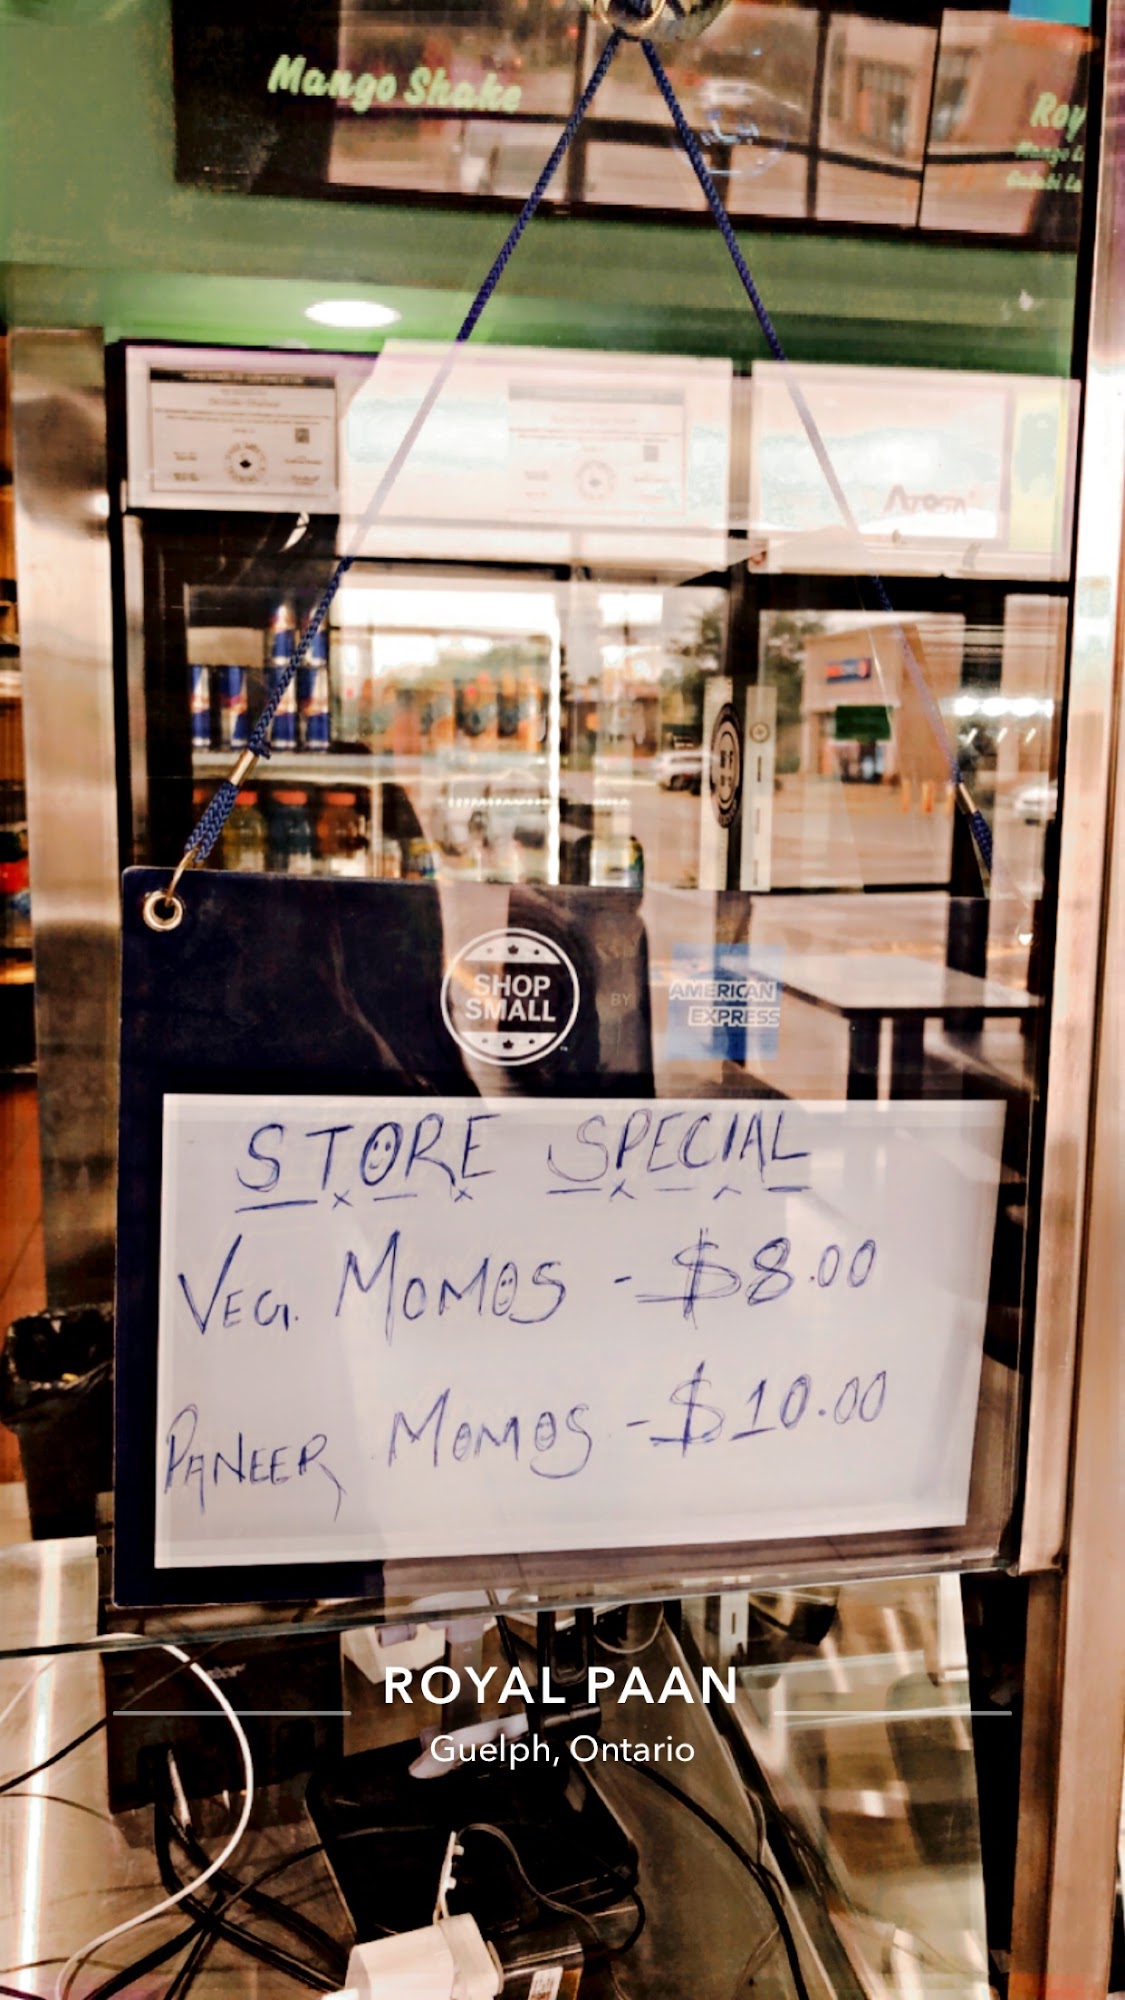 Mango Shake
Roy
Mango L
Gulabi La
Atosa
SHOP
SMALL
BY
AMERICAN
EXPRESS
STORE SPECIAL
VEG. MOMOS - $8.00
PANEER MOMOS - $10.00
ROYAL PAAN
Guelph, Ontario